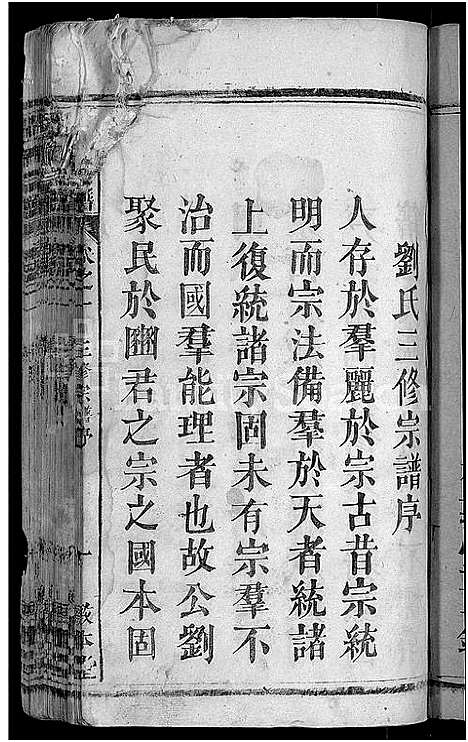 劉氏三修宗譜序
人存於羣麗於宗古昔宗統
明而宗法備羣於天者統諸
上復統諸宗固未有宗羣不
治而國羣能理者也故公劉
聚民於豳君之宗之國本固
譜
卷之一
三修宗譜序
一